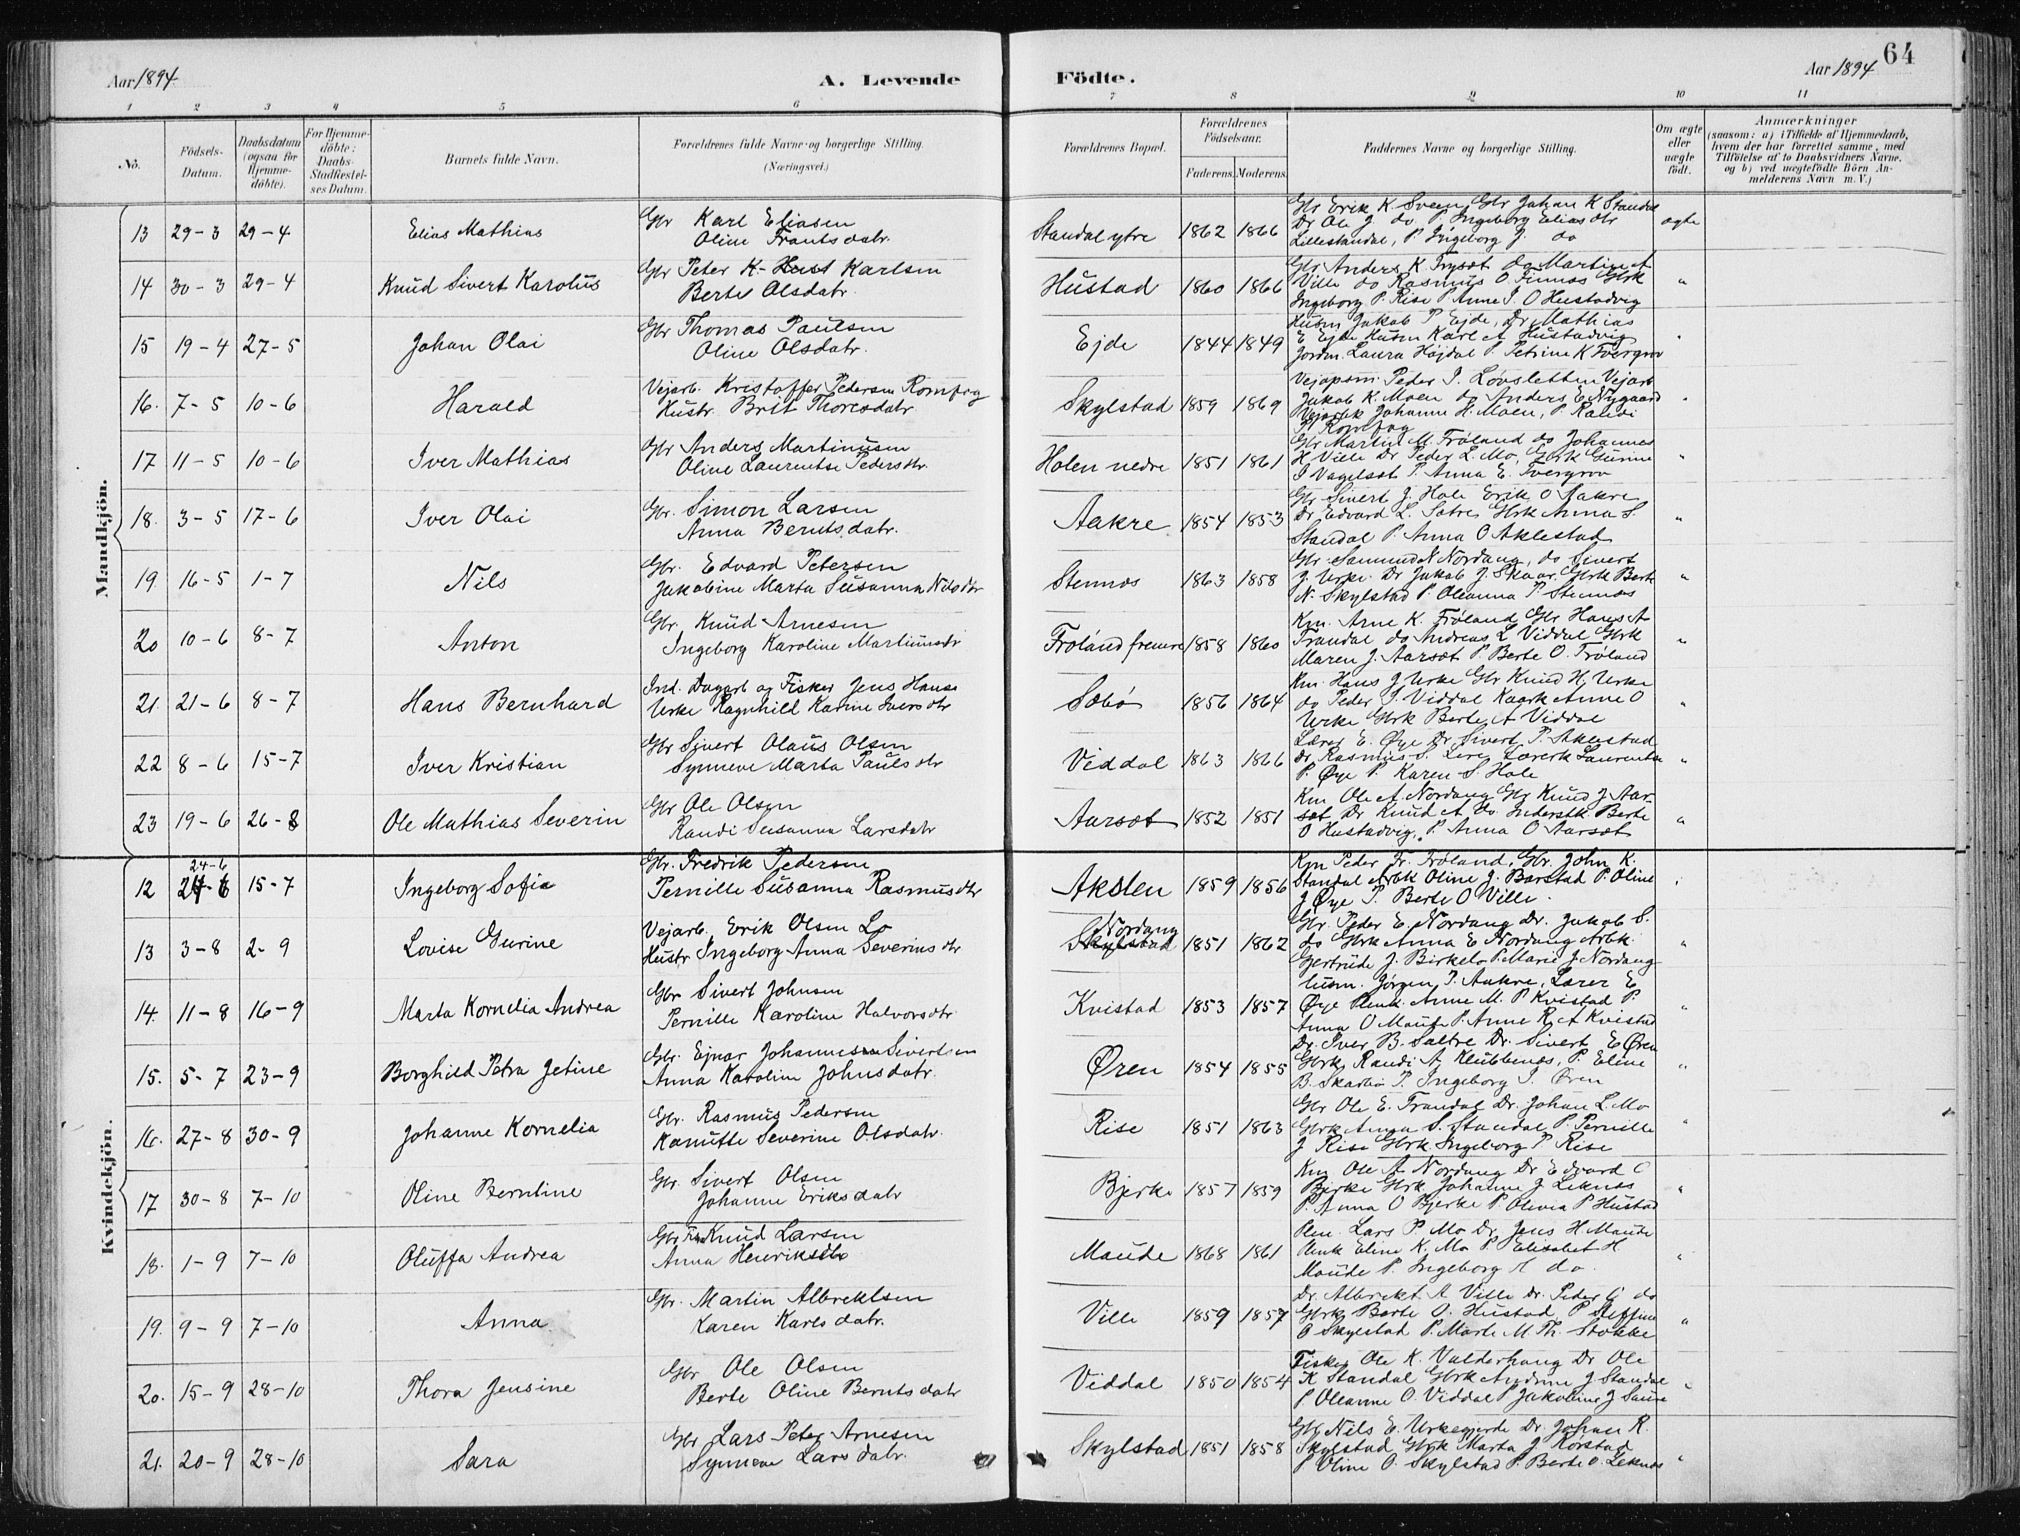 64
Aar 1894
A. Levende
Födte.
Aar 1894
1 2 3 4 5 6 7 8 9 10 11
No.
Födsels-Datum.
Daabsdatum (ogsaa for Hjemme-döbte).
For Hjemme-döbte: Daabs-Stadfæstel-ses Datum.
Barnets fulde Navn.
Forældrenes fulde Navne og borgerlige Stilling.
(Næringsvei.)
Forældrenes Bopæl.
Forældrenes Födselsaar.
Faderens. Moderens.
Faddernes Navne og borgerlige Stilling.
Om ægte eller uægte födt.
Anmærkninger
(saasom: a) i Tilfælde af Hjemmedaab, hvem der har forrettet samme, med Tilföielse af to Daabsvidners Navne, og b) ved uægtefödte Börn An-melderens Navn m. V.)
Mandkjön.
13 29-3 29-4 Elias Mathias
Gbr Karl Eliasen
Oline Frantsdatr.
Standal ytre 1862 1866
Gbr Erik K. Sveen Gbr Johan K Standal
Dr Ole J do P. Ingeborg Elias dtr
Lillestandal, P. Ingeborg J. do
ægte
14 30-3 29-4 Knud Sivert Karolus
Gbr Peter K- Hust Karlsen
Berte Olsdatr.
Hustad 1860 1866
Ville do Rasmus O Finnes Gbrk
Ingeborg P. Rise P Anne I. O Hustadvig
"
15 19-4 27-5 Johan Olai
Gbr Thomas Paulsen
Oline Olsdatr.
Ejde 1844 1849
Husm Jakob P Ejde, Dr Mathias
E Ejde Husm Karl A Hustadvig
Jordm. Laura Højdal P. Petrine K Tvergrov
"
16. 7-5 10-6 Harald
Vejarb. Kristoffer Pedersen Romfog
Hustr. Brit Thoresdatr
Skylstad 1859 1869
Vejopsm. Peder I. Løvsletten Vejarb
Jakob K. Moen do Anders E Nygaard
Vejarbk Johanne H. Moen, P. Randi
Romfog
"
17 11-5 10-6 Iver Mathias
Gbr Anders Martinusen
Oline Laurentse Pedersdtr.
Holen nedre 1851 1861
Gbr Martin M. Frøland do Johannes
H Ville Dr Peder L. Mo, Gbrk Gurine
I Vagelsæt P. Anna E. Tvergrov
"
18. 3-5 17-6 Iver Olai
Gbr. Simon Larsen
Anna Berntsdatr.
Aakre 1854 1853
Gbr Sivert J. Hole Erik O Aakre
Dr Edvard L. Sætre Gbrk Anna S.
Standal P. Anna O Aklestad
"
19. 16-5 1-7 Nils
Gbr. Edvard Petersen
Jakobine Marta Susanna Nilsdtr
Stennes 1863 1858
Gbr. Samund N Nordang, do Sivert
J. Urke. Dr Jakob J. Skaar. Gbrk Berte
N. Skylstad P. Oleanna P. Stennes
"
20 10-6 8-7 Anton
Gbr. Knud Arnesen
Ingeborg Karoline Martinusdtr
Frøland fremre 1858 1860
Km. Arne K. Frøland Gbr Hans A
Trandal do Andreas L Viddal Gbrk
Maren J. Aarset P. Berte O. Frøland
"
21. 21-6 8-7 Hans Bernhard
Ind. Dagarb og Fisker Jens Hansen
Urke Ragnhild Karine Iversdtr
Sæbø 1856 1864
Km. Hans J Urke Gbr Knud H. Urke
do Peder I. Viddal Kaark Anne O
Urke Gbrk Berte A Viddal
"
22 8-6 15-7 Iver Kristian
Gbr Sivert Olaus Olsen
Synneve Marta Paulsdtr
Viddal 1863 1866
Lærer E. Øye Dr Sivert P. Aklestad
P. Øye P. Karen S. Hole
"
23 19-6 26-8 Ole Mathias Severin
Gbr Ole Olsen
Randi Susanna Larsdatr
Aarsæt 1852 1851
Km Ole A. Nordang Gbr Knud J Aar-
sæt Dr Knud A do. Inderstk Berte
O Hustadvig, P. Anna O Aarsæt
"
Kvindekjön.
24-6
12 24-6 15-7 Ingeborg Sofie
Gbr. Fredrik Pedersen
Pernille Susanna Rasmusdtr
Akslen 1859 1856
Km Peder Fr. Frøland, Gbr. John K.
Standal Arbk Oline J. Barstad P. Oline
J Øye P. Berte O Ville.
"
13 3-8 2-9 Lovise Gurine
Vejarb. Erik Olsen Lo
Hustr Ingeborg Anna Severinsdtr
Nordang
Skylstad 1851 1862
Gbr. Peder E. Nordang Dr. Jakob S.
do Gbrk Anna E Nordang Arbk.
Gertrude J. Birkelo P. Marie J. Nordang
"
14. 11-8 16-9 Marta Kornelia Andrea
Gbr Sivert Johnsen
Pernille Karoline Halvorsdtr
Kvistad 1853 1857
Husm. Jørgen I. Aakre, Lærer E
Øye Plenk. Anne M. P Kvistad P.
Anna O Maude P. Anne R. A Kvistad
"
15. 5-7 23-9 Borghild Petra Jetine
Gbr. Ejnar Johannes Sivertsen
Anna Karoline Johnsdatr.
Øren 1854 1855
Dr. Iver B. Sætre Dr. Sivert E Øren
Gbrk Randi A Klubbenes, P. Eline
B. Skarbø P. Ingeborg I. Øren
"
16. 27-8 30-9 Johanne Kornelia
Gbr. Rasmus Pedersen
Kanutte Severine Olsdatr.
Rise 1851 1863
Gbr Ole E. Trandal Dr. Johan L. Mo
Gbrk Anna S. Standal P. Pernille
J Rise Gbrk Ingeborg P Rise
"
17 30-8 7-10 Oline Berntine
Gbr. Sivert Olsen
Johanne Eriksdatr
Bjerke 1857 1859
Km Ole A Nordang Dr Edvard C
Bjerke Gbrk Johanne J Leknes
P. Anna O Bjerke P. Olivia P Hustad
"
18. 1-9 7-10 Oluffa Andrea
Gbr Knud Larsen
Anna Henriksdtr
Maude 1868 1861
Plen. Lars P. Mo Dr. Jens H Maude
Plenk Eline K. Mo P. Elisabet H.
Maude P. Ingeborg A do.
"
19. 9-9 7-10 Anna
Gbr. Martin Albrektsen
Karen Karlsdatr.
Ville 1859 1857
Dr. Albrekt A Ville Dr. Peder C do
Gbrk Berte O. Hustad P Steffine
O Skylstad P. Marte M. Th. Stokke
"
20. 15-9 28-10 Thora Jensine
Gbr Ole Olsen
Berte Oline Berntsdatr
Viddal 1850 1854
Fisker Ole K. Valderhaug Dr Ole
K Standal Gbrk Andrine J Standal
P Oleanne O. Viddal P Jakobine J Saure
"
21. 20-9 28-10 Sara
Gbr Lars Peter Arnesen
Synneve Larsdatr.
Skylstad 1851 1858
Gbr Nils E. Urkegjerde Dr. Johan R.
Skylstad Gbrk Marta J Korstad
P Oline O. Skylstad P. Berte O. Leknes
"